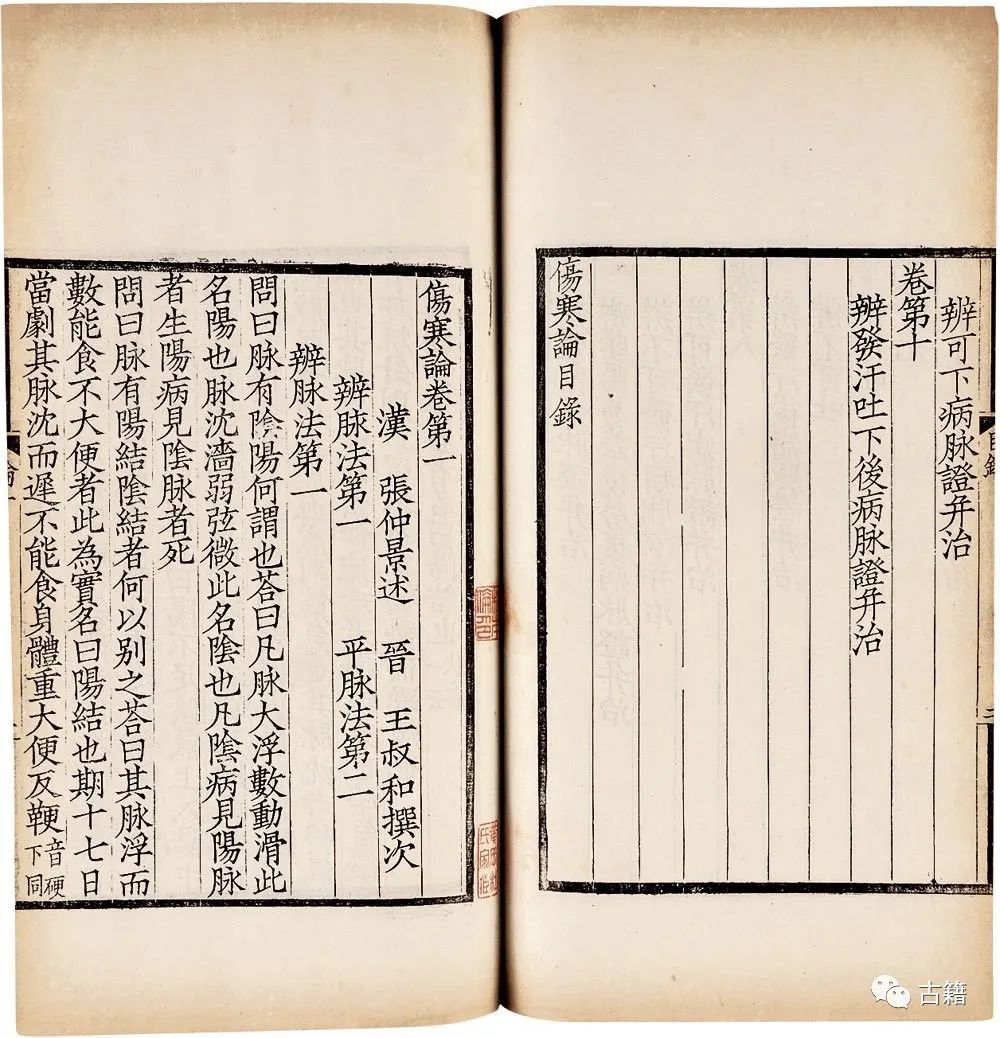 辨可下病脉證并治
卷第十
辨發汗吐下後病脉證并治
傷寒論目錄
目錄
二
傷寒論卷第一
漢 張仲景述 晉 王叔和撰次
辨脉法第一 平脉法第二
辨脉法第一
問曰脉有陰陽何謂也荅曰凡脉大浮數動滑此
名陽也脉沈濇弱弦微此名陰也凡陰病見陽脉
者生陽病見陰脉者死
問曰脉有陽結陰結者何以别之荅曰其脉浮而
數能食不大便者此為實名曰陽結也期十七日
當劇其脉沈而遲不能食身體重大便反鞕音硬下同
論一
古籍